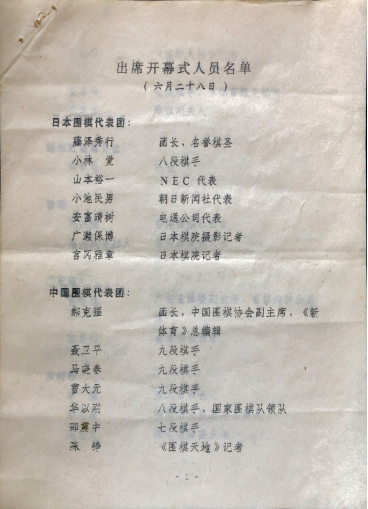 出席开幕式人员名单
（六月二十八日）
日本围棋代表团：
藤泽秀行 团长，名誉棋圣
小林 觉 八段棋手
山本裕一 NEC 代表
小池民男 朝日新闻社代表
安富靖树 电通公司代表
广濑保博 日本棋院摄影记者
宫闪雅章 日本棋院记者
中国围棋代表团：
郝克强 团长，中国围棋协会副主席，《新
体育》总编辑
聂卫平 九段棋手
马晓春 九段棋手
曹大元 九段棋手
华以刚 八段棋手，国家围棋队领队
邵震中 七段棋手
陈 《围棋天地》记者
- 1 -